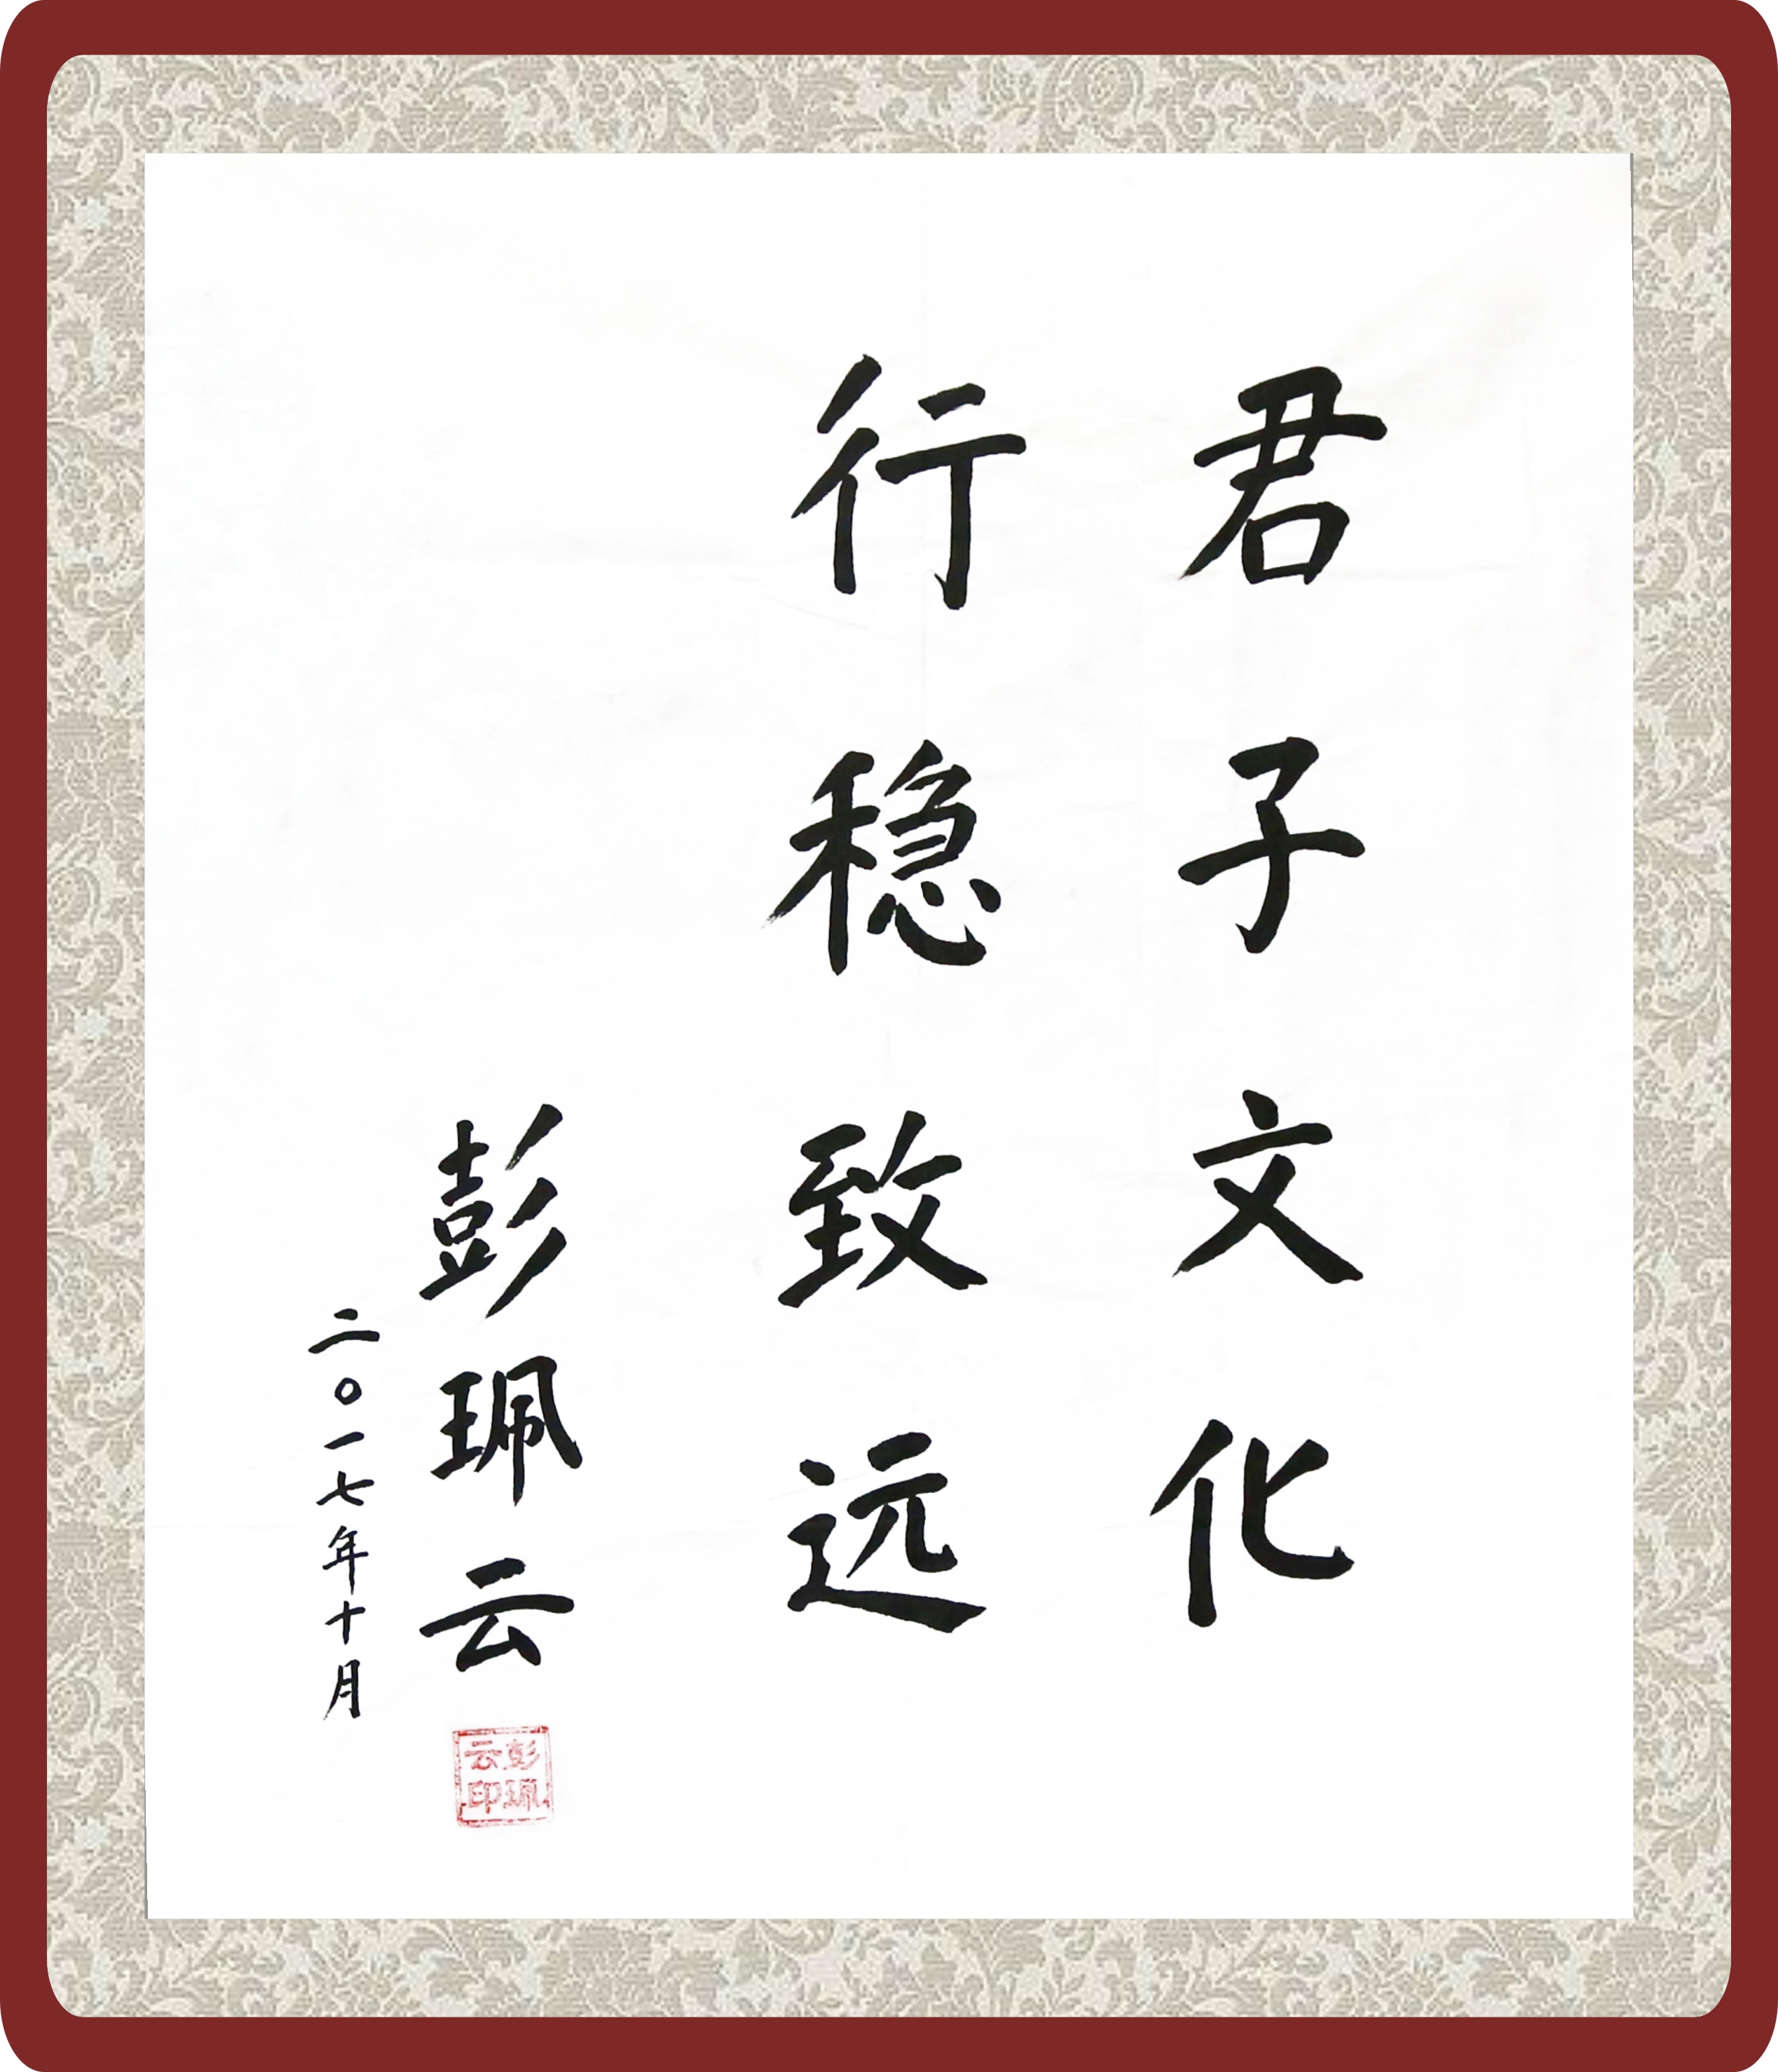 君子文化
行稳致远
彭珮云
二〇一七年十月
彭珮云印